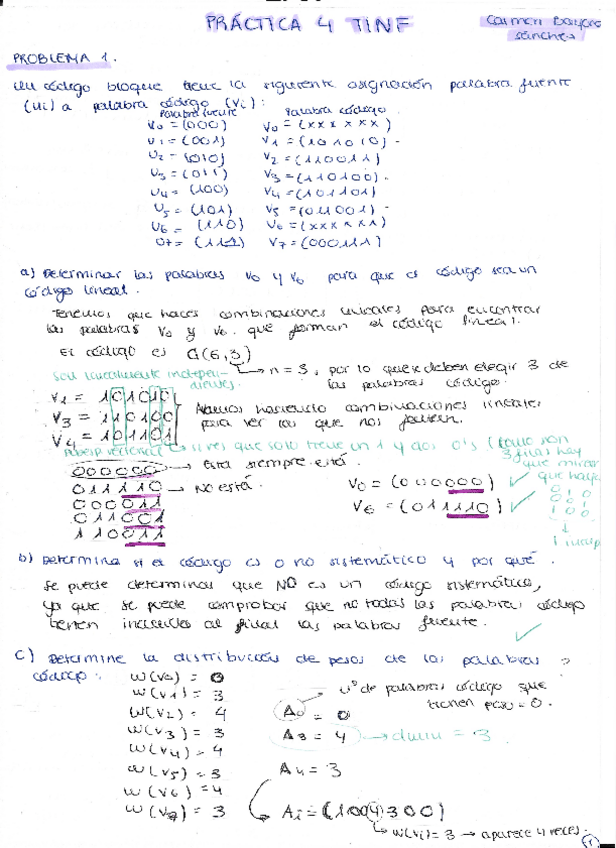 PRÁCTICA 4 TINF
Carmen
Sánchez
PROBLEMA 1.
Un código bloque tiene la siguiente asignación palabra fuente
(Ui) a palabra código (Vi):
Palabra fuente Palabra código
U0 = (000) V0 = (xxxxxx)
U1 = (001) V1 = (101010)
U2 = (010) V2 = (110011)
U3 = (011) V3 = (110100)
U4 = (100) V4 = (101101)
U5 = (101) V5 = (011001)
U6 = (110) V6 = (xxxxxx)
U7 = (111) V7 = (000111)
a) Determinar las palabras V0 y V6 para que el código sea un
código lineal.
Tenemos que hacer combinaciones lineales para encontrar
las palabras V0 y V6 que forman el código lineal.
El código es G(6,3)
n = 3, por lo que deben elegir 3 de
las palabras código.
son linealmente independientes
V1 = 101010
V3 = 110100
V4 = 101101
Vamos haciendo combinaciones lineales
para ver las que nos faltan.
que solo tiene un 1 y dos 0's (como son
3 filas hay
que mirar
que haya
0 1 0
1 0 0
000000 → Esta siempre está.
011110 → No está.
000011
011001
110011
V0 = (000000) ✓
V6 = (011110) ✓
b) Determina si el código es o no sistemático y por qué.
Se puede determinar que NO es un código sistemático,
ya que se puede comprobar que no todas las palabras código
tienen incluidas al final las palabras fuente. ✓
c) Determine la distribución de pesos de las palabras
código:
W(V0) = 0
W(V1) = 3
W(V2) = 4
W(V3) = 3
W(V4) = 4
W(V5) = 3
W(V6) = 4
W(V7) = 3
nº de palabras código que
tienen peso = 0.
A0 = 0
A3 = 4 → dmin = 3.
A4 = 3
Ai = (1004300)
W(Vi) = 3 → aparece 4 veces.
1